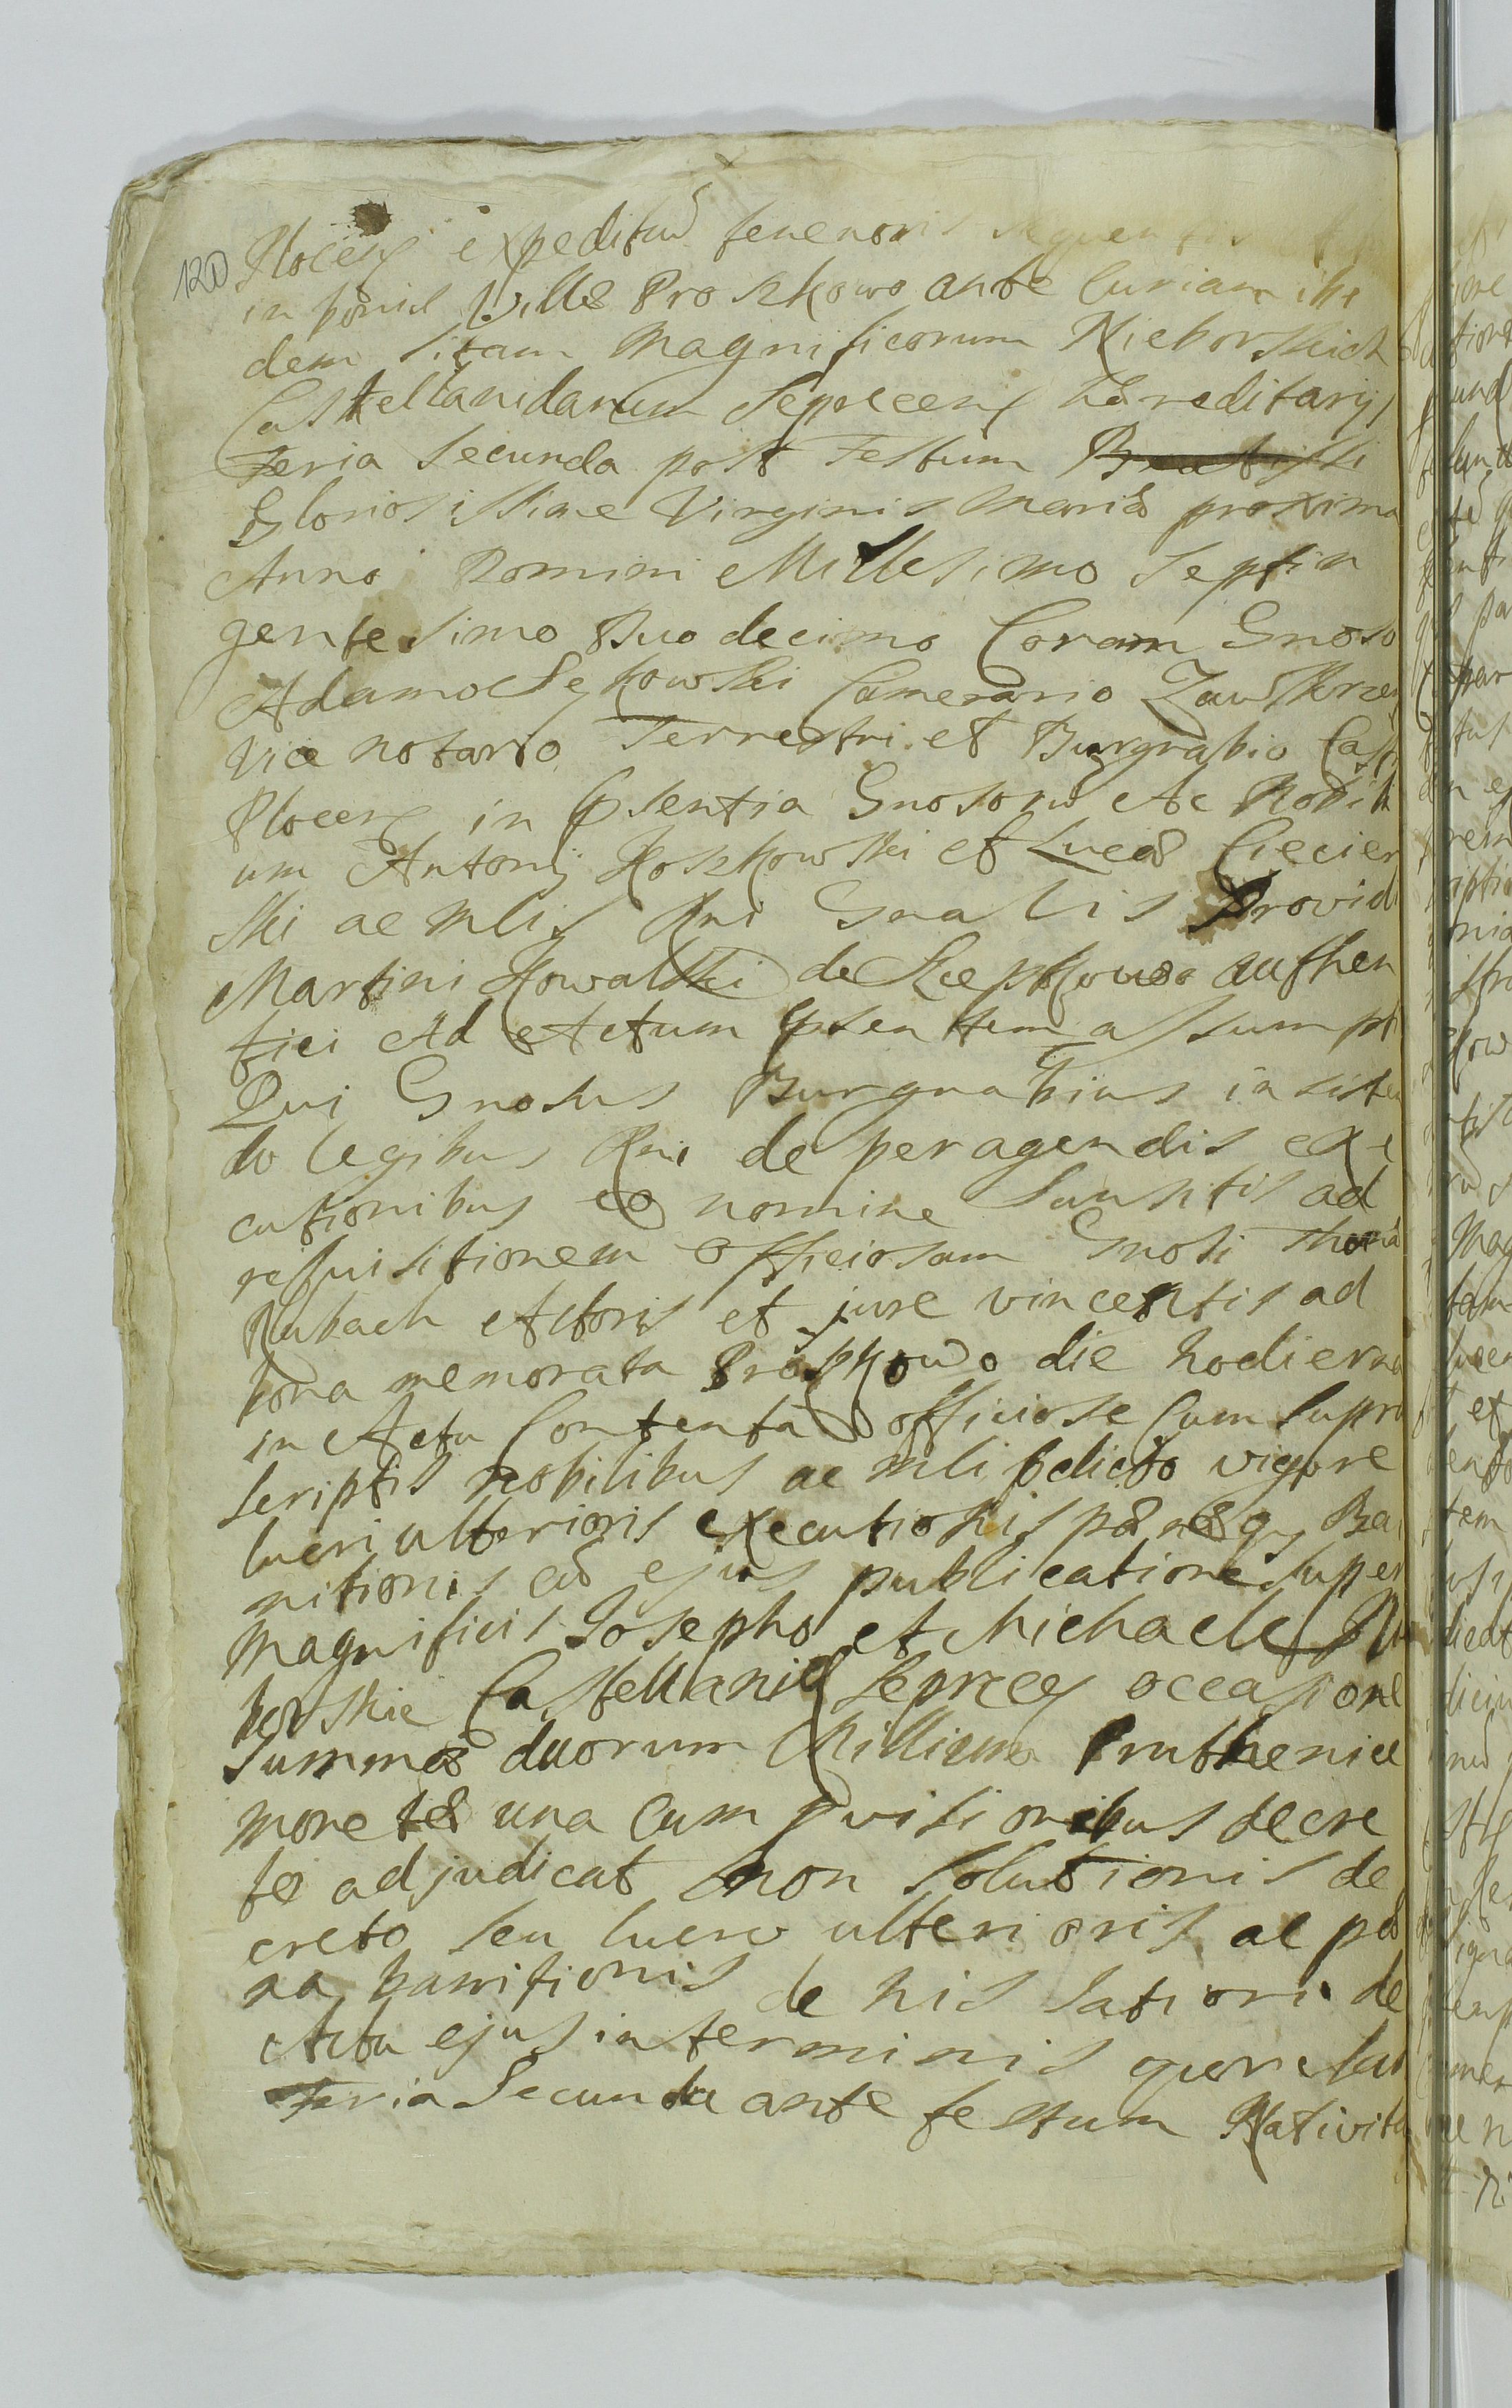 120
Plocen expeditu tenenoris sequentis
in bonis Villæ Proszkowo ante Curiam ibi
dem sitam Magnificorum Nieborskich
Castellanidarum Seprcen hæreditarijs
Feria Secunda post Festum
Gloriosissimæ Virginis Mariæ proxima
Anno Domini Millesimo Septin
gentesimo Duo decimo Coram Gnoso
Adamo Sękowski Camerario Zawskrzen
Vice notario Terrestri et Burgrabio Cast
Plocen in Psentia Gnosorũ Ac Nobili
um Antonij Koszkowski et Lucæ Ciecier
ski ac mlis Rni Gnalis Provid
Martini Kowalski de authen
tici Ad Actum Psentem assumpti
Qui Gnosus Burgrabius insisten
do legibus Rni de peragendis exe
cutionibus eo nomine Sansitis ad
requisitionem officiosam Gnosi Thomæ
Rubach Actoris et jure vincentis ad
bona memorata Proszkowo die hodierna
in Actu Contenta officiose Cum Supra
scriptis nobilibus ac mli pdicto vigore
lucri ulterioris executionis pænæq Ba
nitionis ad ejus publicatione super
Magnificis Josepho et Michaele Nie
borskie Castellanid Seprcen occasione
Summæ duorum Millium Pruthenicæ
monetæ una Cum pvisionibus decre
to adjudicat non Solutionis de
creto seu lucro ulterioris ac pæ
na bannitionis de his latiori de
Actu ejus in terminis
Feria Secunda ante festum Nativita